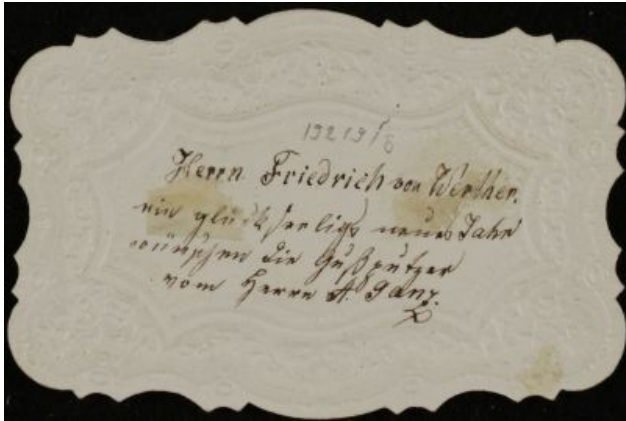 1921918
Herrn Friedrich von Werther.
ein glückseeliges neues Jahr
wünschen die Gußputzer
vom Herrn A. Ganz.